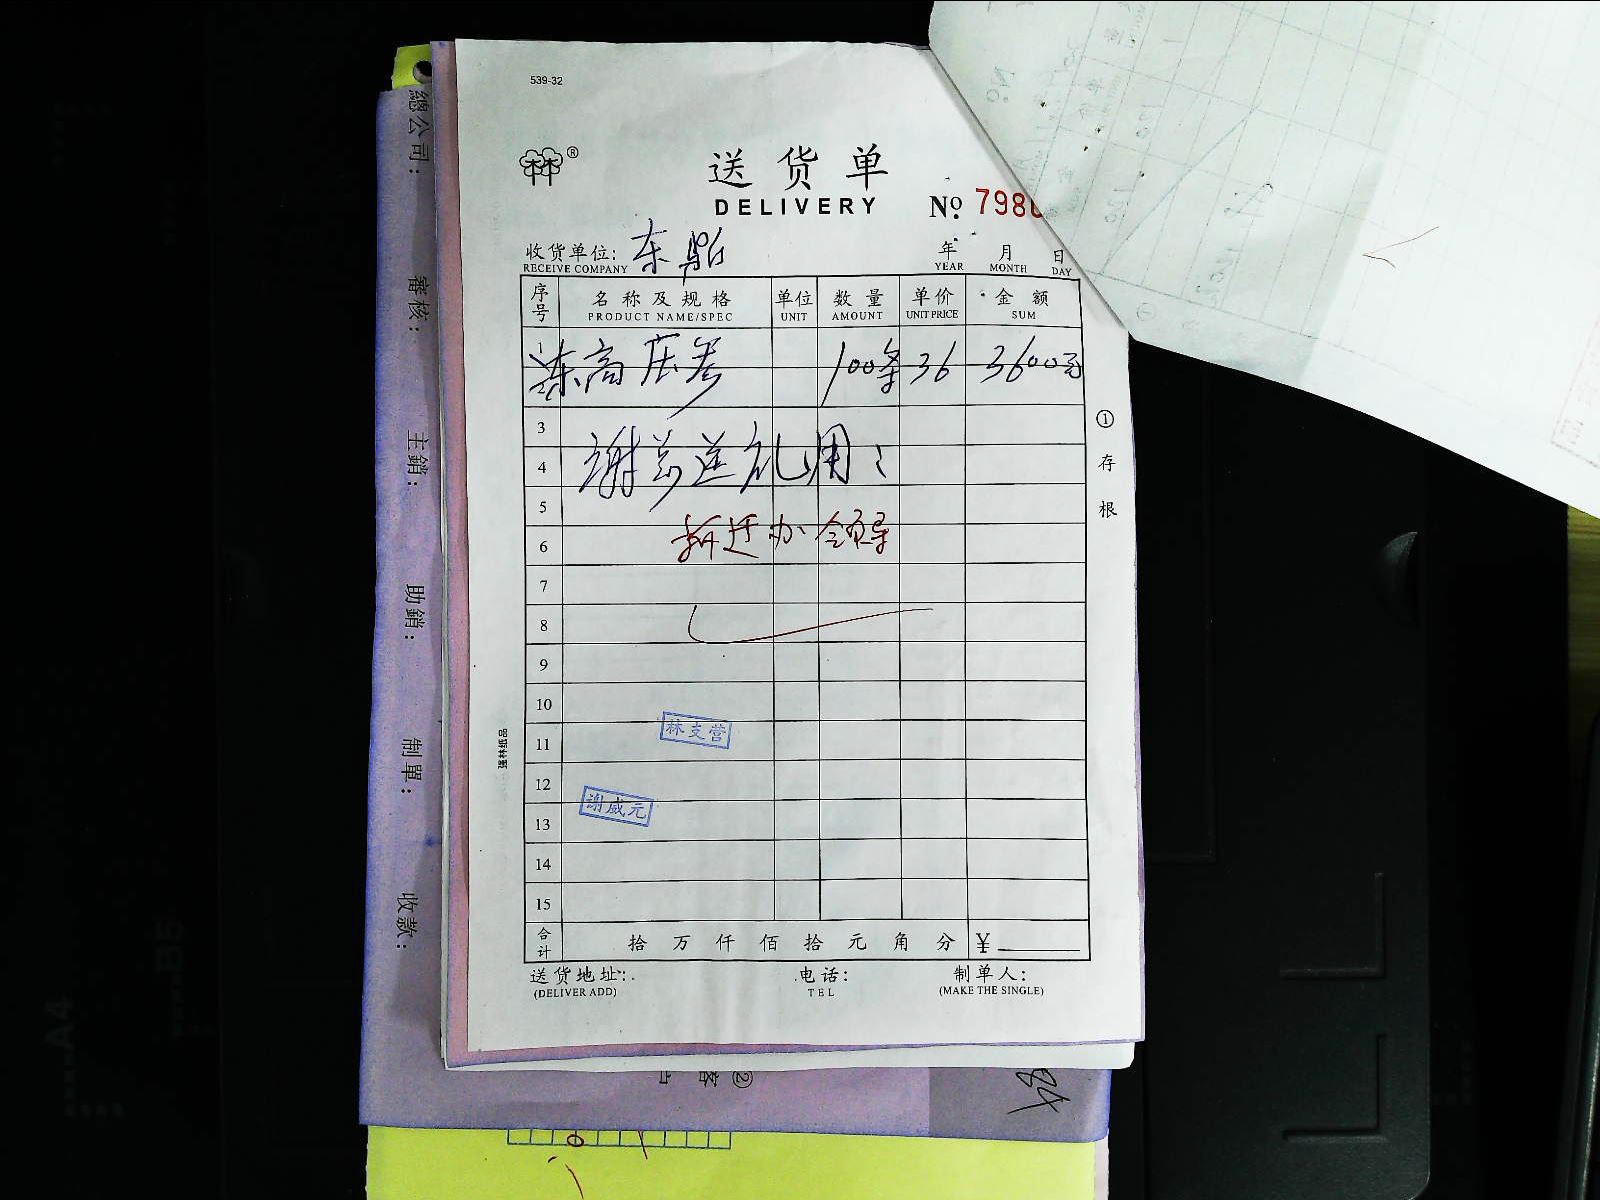 539-32
林®
送货单
DELIVERY
No. 798
收货单位: 东船
RECEIVE COMPANY
年 月 日
YEAR MONTH DAY
序号 名称及规格 单位 数量 单价 金额
PRODUCT NAME/SPEC UNIT AMOUNT UNIT PRICE SUM
1
2
东高压参 100条 36 3600元
3
谢总送礼用:
4
5
拆迁办领导
6
7
8
9
10
林支营
11
12
谢威元
13
14
15
合计 拾万仟佰拾元角分 ¥
送货地址: 电话: 制单人:
(DELIVER ADD) TEL (MAKE THE SINGLE)
①存根
强林纸品
總公司:
審核:
主銷:
助銷:
制單:
收款:
84
A4
B5